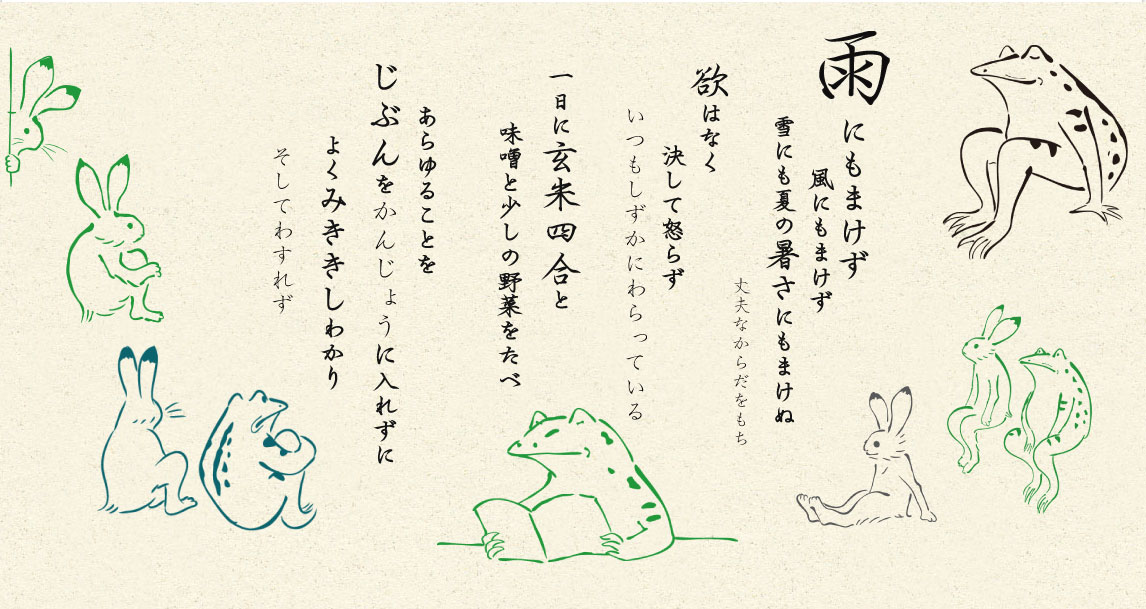 雨にもまけず
風にもまけず
雪にも夏の暑さにもまけぬ
丈夫なからだをもち
欲はなく
決して怒らず
いつもしずかにわらっている
一日に玄米四合と
味噌と少しの野菜をたべ
あらゆることを
じぶんをかんじょうに入れずに
よくみききしわかり
そしてわすれず